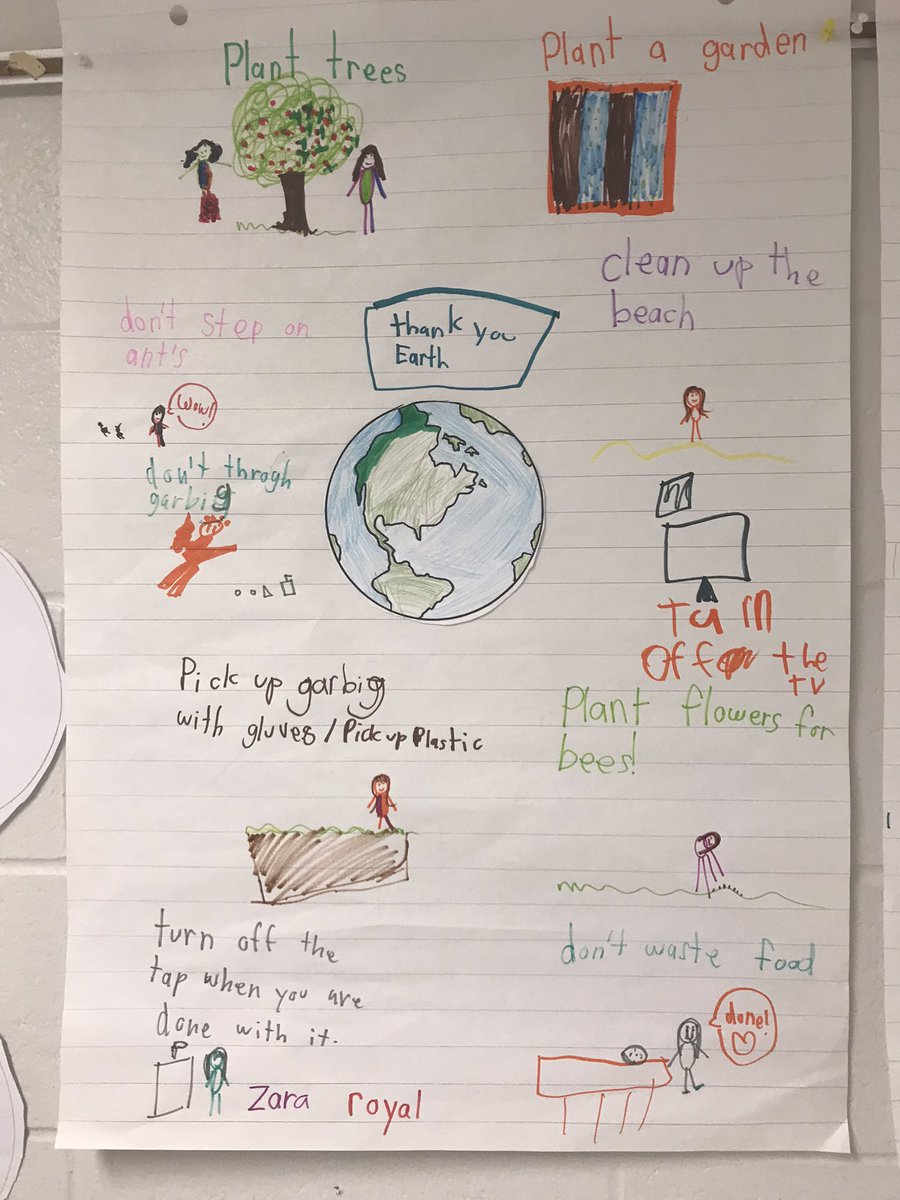 Plant trees
Plant a garden
clean up the
beach
thank you
Earth
don't step on
ant's
Wow!
don't throgh
garbig
Turn
Off the
TV
Pick up garbig
with gluves / Pick up Plastic
Plant flowers for
bees!
turn off the
tap when you are
done with it.
don't waste food
done!
Zara royal